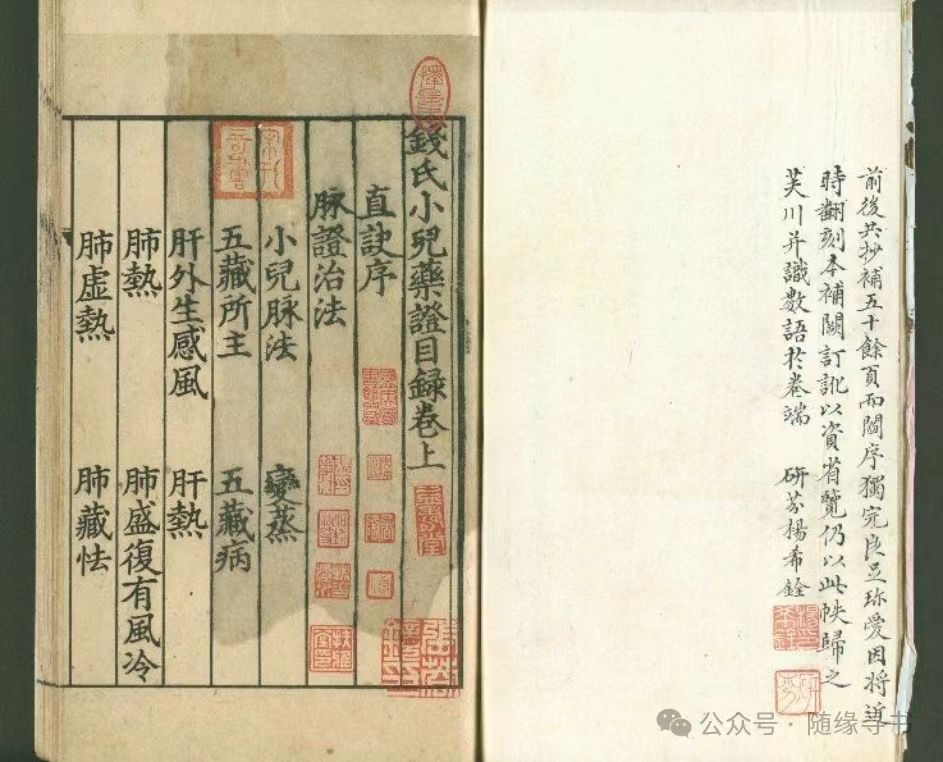 前後共抄補五十餘頁而閻序獨完良足珍愛因將近
時翻刻本補闕訂訛以資省覽仍以此帙歸之
芙川并識數語於卷端　研芬楊希銓
錢氏小兒藥證目録卷上
直訣序
脉證治法
小兒脉法　變蒸
五藏所主　五藏病
肝外生感風　肝熱
肺熱　肺盛復有風冷
肺虚熱　肺藏怯
公众号 · 随缘寻书